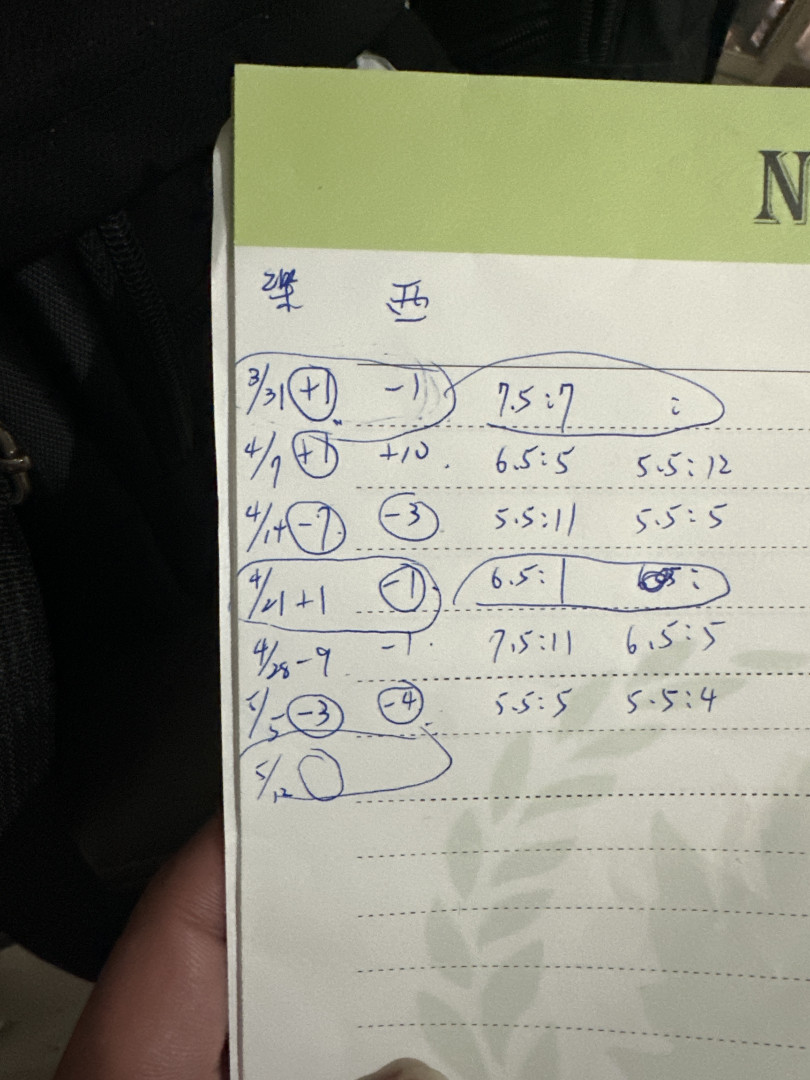 N
樂 西
3/31 +1 -1 7.5:7 :
4/7 +1 +10 6.5:5 5.5:12
4/14 -7 -3 5.5:11 5.5:5
4/21 +1 -1 6.5:1 :
4/28 -9 -1 7.5:11 6.5:5
5/5 -3 -4 5.5:5 5.5:4
5/12